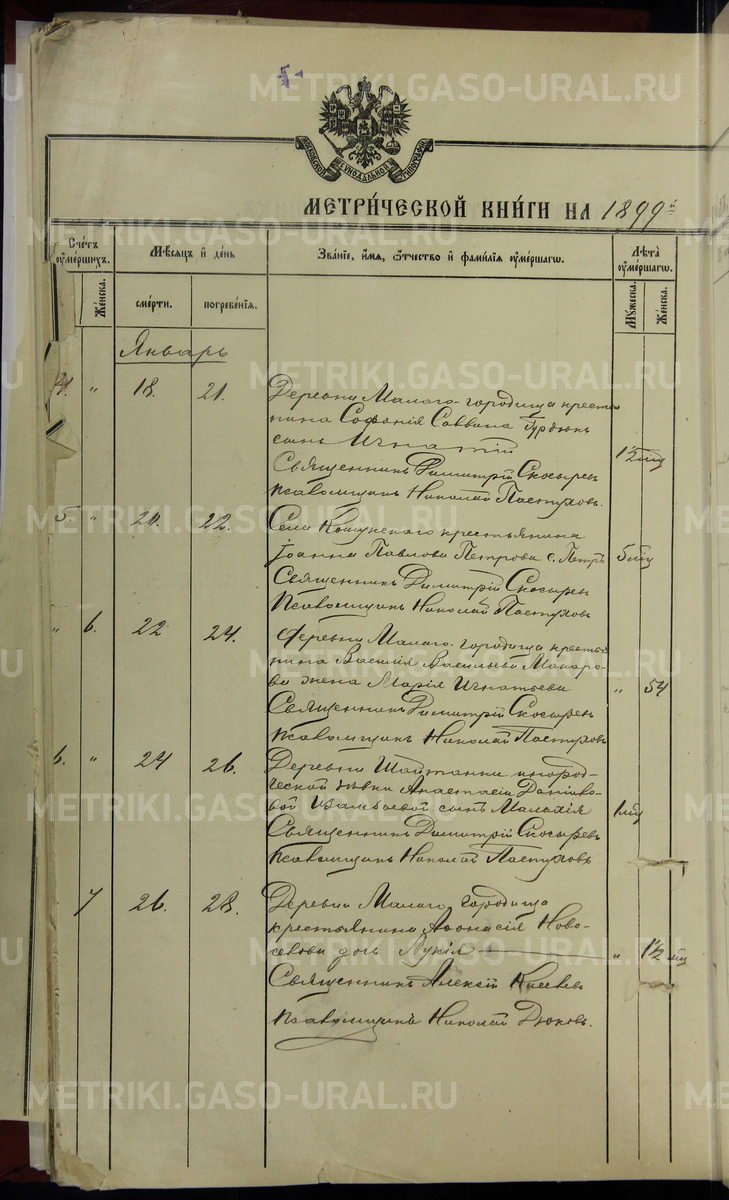 5-
МОСКОВСКОЙ СѴНОДАЛЬНОЙ ТИПОГРАФІИ
МЕТРИ́ЧЕСКОЙ КНИ́ГИ НА 1899й
Сче́тъ оуме́ршихъ. Мѣ́сяцъ и де́нь Зва́ніе, и́мя, ѻ҆́тчество и фами́лія оуме́ршагѡ. Лѣ́та оуме́ршагѡ.
Же́нска. сме́рти. погребе́нія. Му́жеска. Же́нска.
Январь
4. " 18. 21. Деревни Малаго городища кресть
янина Софонія Саввина
сынъ Игнатій 1½ мѣц
Священникъ Димитрій Скосырев
Псаломщикъ Николай Пастуховъ.
5. " 20. 22. Села Кошукскаго крестьянина
Іоанна Павлова Петрова с. Петръ 5 мѣц
Священникъ Димитрій Скосырев
Псаломщикъ Николай Пастуховъ
" 6. 22 24. Деревни Малаго городища кресть
янина Василія Васильева Макаро-
ва жена Марія Игнатьева " 54
Священникъ Димитрій Скосыревъ
Псаломщикъ Николай Пастуховъ
6. " 24 26. Деревни Шайтанки инород-
ческой дѣвки Анастасіи Данило-
вой сынъ Малахія 1 мѣц
Священникъ Димитрій Скосыревъ
Псаломщикъ Николай Пастуховъ
7 26. 28. Деревни Малаго городища
крестьянина Аѳонасія Ново-
селова дочь Лукія " 1½ мѣц
Священникъ Алексій
Псаломщикъ Николай Дюковъ.
METRIKI.GASO-URAL.RU